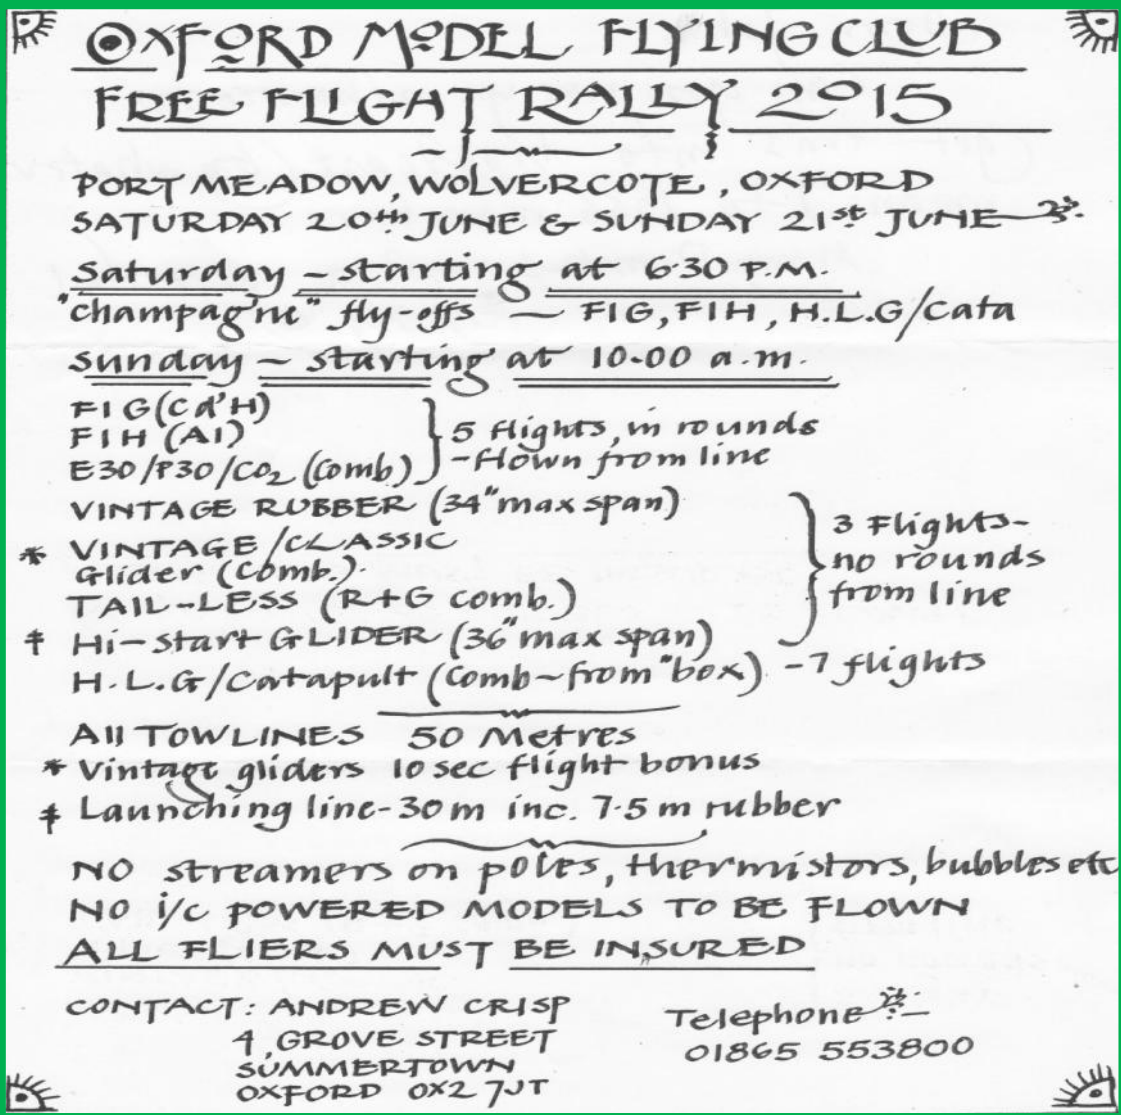 OXFORD MODEL FLYING CLUB
FREE FLIGHT RALLY 2015
PORT MEADOW, WOLVERCOTE, OXFORD
SATURDAY 20th JUNE & SUNDAY 21st JUNE
Saturday - starting at 6.30 P.M.
"champagne" fly-offs - F1G, F1H, H.L.G/Cata
Sunday - starting at 10.00 a.m.
F1G (Cd'H)
F1H (A1)
E30/P30/CO2 (Comb)
5 flights, in rounds
- flown from line
VINTAGE RUBBER (34" max span)
* VINTAGE/CLASSIC
Glider (Comb.)
TAIL-LESS (R+G comb.)
‡ Hi-start GLIDER (36" max span)
3 Flights-
no rounds
from line
H.L.G/Catapult (Comb - from "box) - 7 flights
All TOWLINES 50 Metres
* Vintage gliders 10 sec flight bonus
‡ Launching line - 30m inc. 7.5m rubber
NO streamers on poles, thermistors, bubbles etc
NO i/c POWERED MODELS TO BE FLOWN
ALL FLIERS MUST BE INSURED
CONTACT: ANDREW CRISP
4, GROVE STREET
SUMMERTOWN
OXFORD OX2 7JT
Telephone
01865 553800